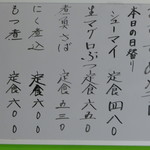 本日の日替り
シューマイ 定食 四八〇
生マグロぶつ 定食 六五〇
煮魚さば 定食 五三〇
にく煮込 定食 六〇〇
もつ煮 定食 六〇〇